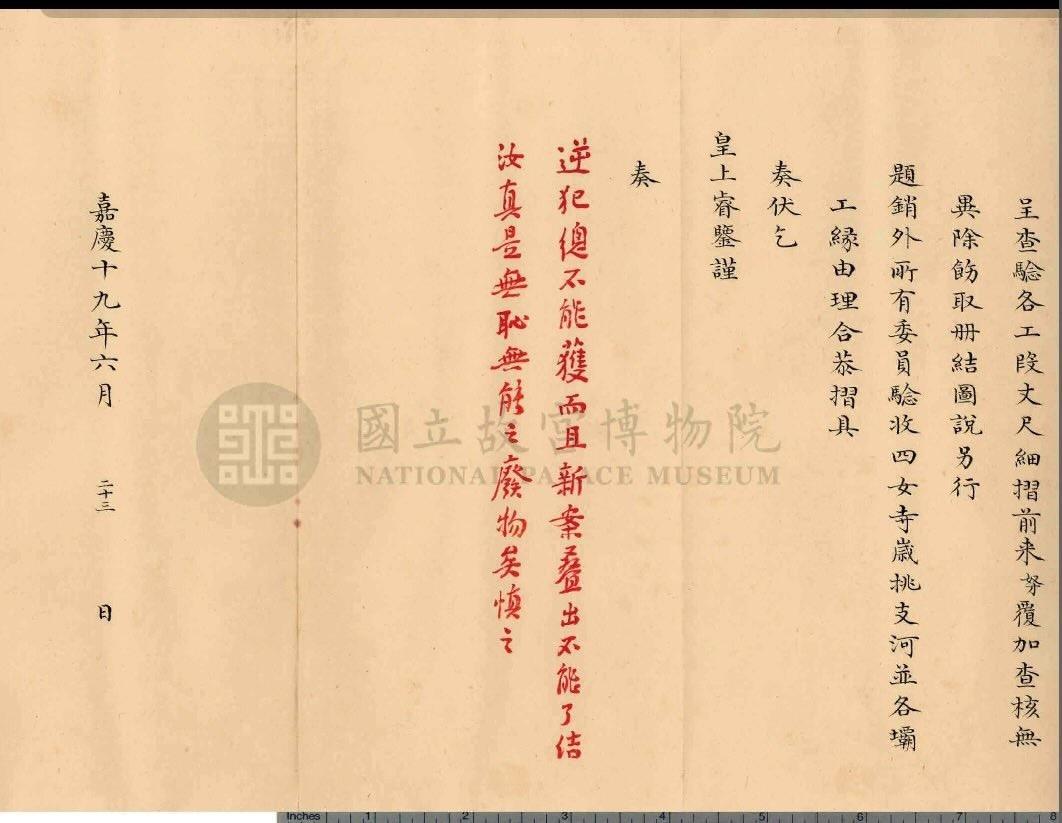 呈查驗各工段丈尺細摺前来努覆加查核無
異除飭取册結圖說另行
題銷外所有委員驗收四女寺歲挑支河並各壩
工緣由理合恭摺具
奏伏乞
皇上睿鑒謹
奏
逆犯總不能獲而且新案叠出不能了结
汝真是無恥無能之廢物矣慎之
嘉慶十九年六月 二十三 日
國立故宮博物院
NATIONAL PALACE MUSEUM
Inches 1 2 3 4 5 6 7 8